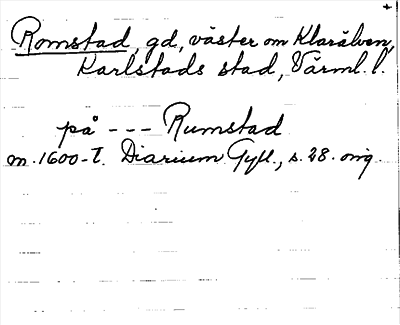 Romstad, gd, väster om Klarälven,
Karlstads stad, Värml. l.
på --- Rumstad
m. 1600-t. Diarium Gyll., s. 28. orig.